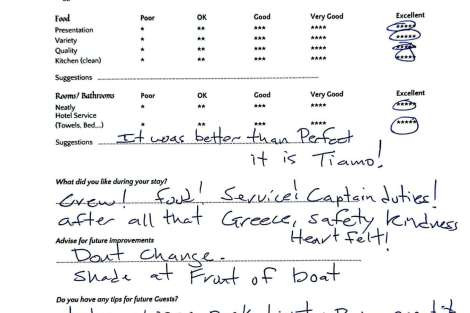 Food Poor OK Good Very Good Excellent
Presentation * ** *** **** *****
Variety * ** *** **** *****
Quality * ** *** **** *****
Kitchen (clean) * ** *** **** *****
Suggestions
Rooms/ Bathrooms Poor OK Good Very Good Excellent
Neatly * ** *** **** *****
Hotel Service
(Towels, Bed...) * ** *** **** *****
Suggestions It was better than Perfect
it is Tiamo!
What did you like during your stay?
Crew! food! Service! Captain duties!
after all that Greece, safety kindness
Heart felt!
Advise for future improvements
Dont change.
Shade at Front of boat
Do you have any tips for future Guests?